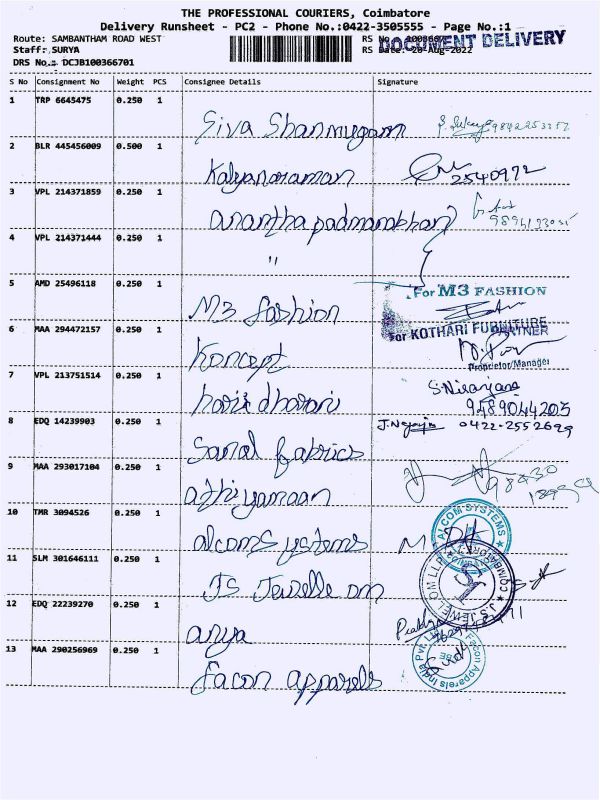 THE PROFESSIONAL COURIERS, Coimbatore
Delivery Runsheet - PC2 - Phone No.:0422-3505555 - Page No.:1
Route: SAMBANTHAM ROAD WEST
RS No.
DOCUMENT DELIVERY
Staff: SURYA
RS Date: 20-Aug-2022
DRS No.: DCJB100366701
S No Consignment No Weight PCS Consignee Details Signature
1 TRP 6645475 0.250 1 Siva Shanmugam
2 BLR 445456009 0.500 1 Kalyanaraman 2540972
3 VPL 214371859 0.250 1 anantha padmanabhan
4 VPL 214371444 0.250 1 "
5 AMD 25496118 0.250 1 M3 fashion
For M3 FASHION
PARTNER
6 MAA 294472157 0.250 1 Koncept
For KOTHARI FURNITURE
Proprietor/Manager
7 VPL 213751514 0.250 1 S.Niranjana
9489044203
8 EDQ 14239903 0.250 1 Sanal fabrics 0422-2552699
9 MAA 293017104 0.250 1 athiyamaan
10 TMR 3094526 0.250 1 alcom Systems
ALCOM SYSTEMS
11 SLM 301646111 0.250 1 JS Jewelle om
J.S. JEWEL OM LLP COIMBATORE
12 EDQ 22239270 0.250 1 arya
13 MAA 290256969 0.250 1 facon apparels
Facon Apparels India Pvt. Ltd